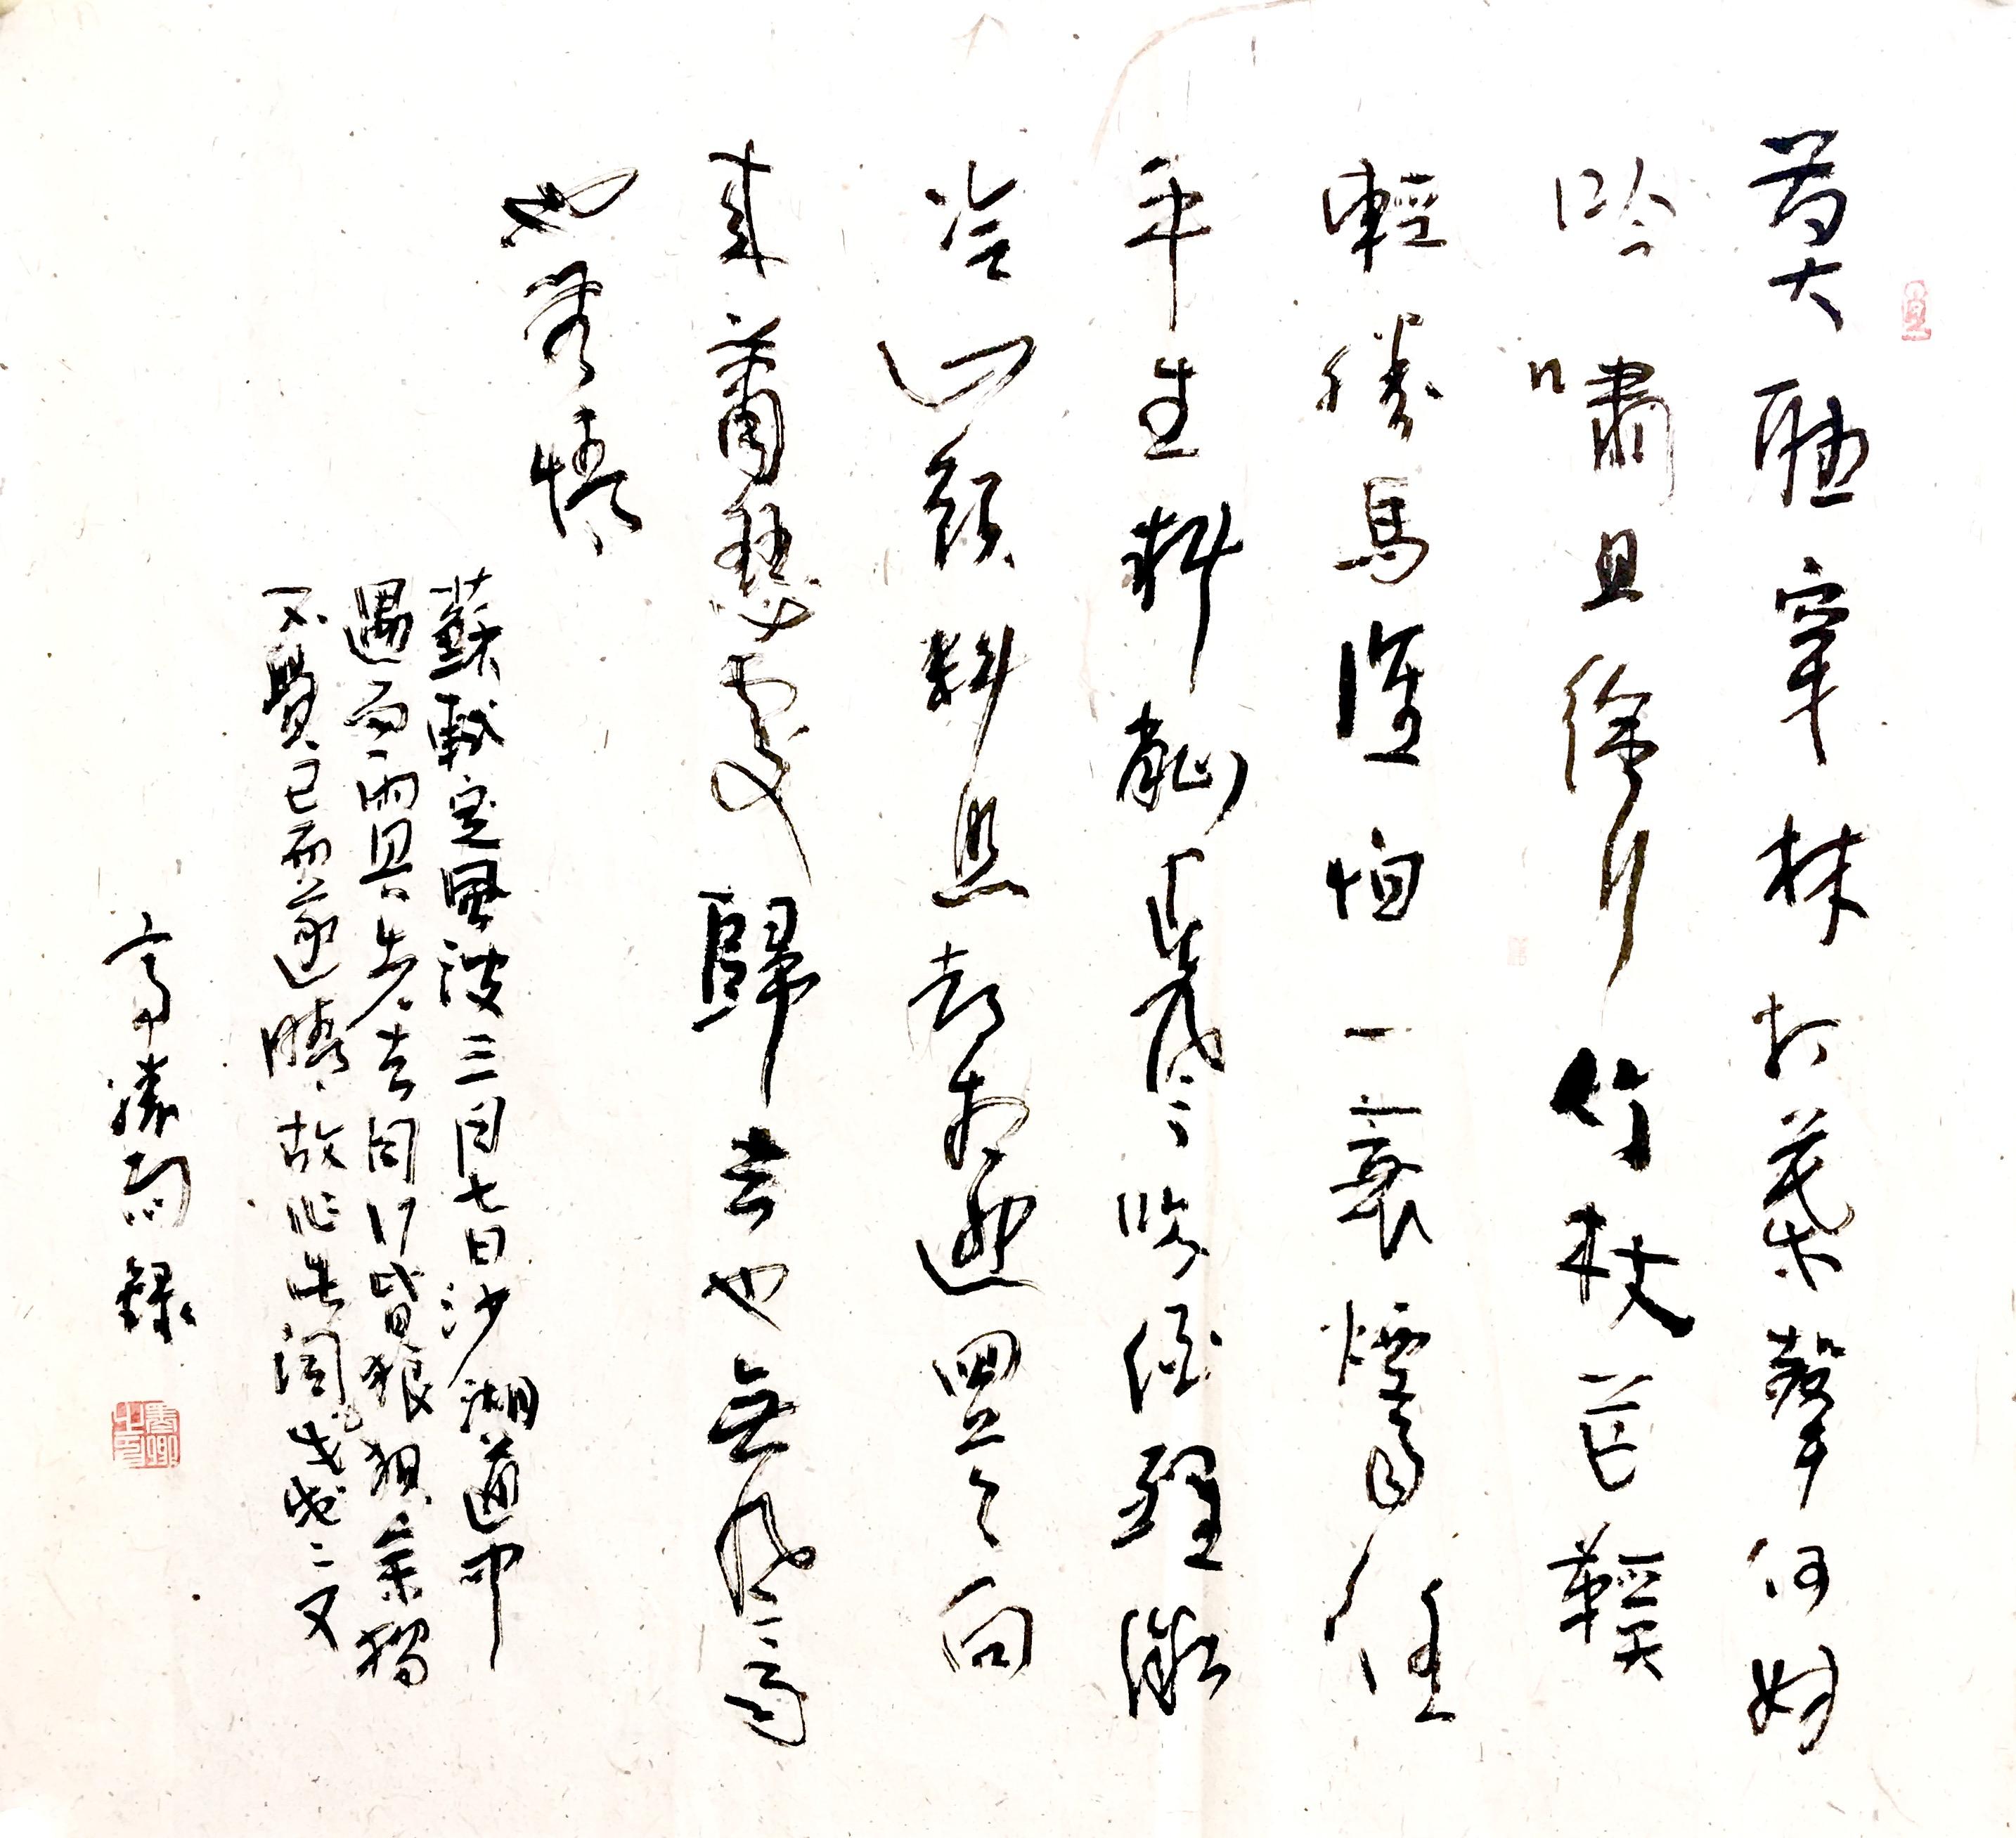 莫聽穿林打葉聲何妨
吟嘯且徐行竹杖芒鞋
輕勝馬誰怕一蓑煙雨任
平生料峭春風吹酒醒微
冷山頭斜照却相迎回首向
來蕭瑟處歸去也無風雨
也無晴
蘇軾定風波三月七日沙湖道中
遇雨雨具先去同行皆狼狽余獨
不覺已而遂晴故作此闋
錄